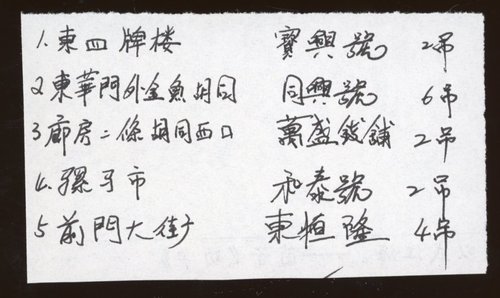 1. 東四牌楼 寳興號 2吊
2 東華門外金魚胡同 同興號 6吊
3 廊房二條胡同西口 萬盛錢舖 2吊
4. 骡子市 永泰號 2吊
5 前門大街 東恒隆 4吊